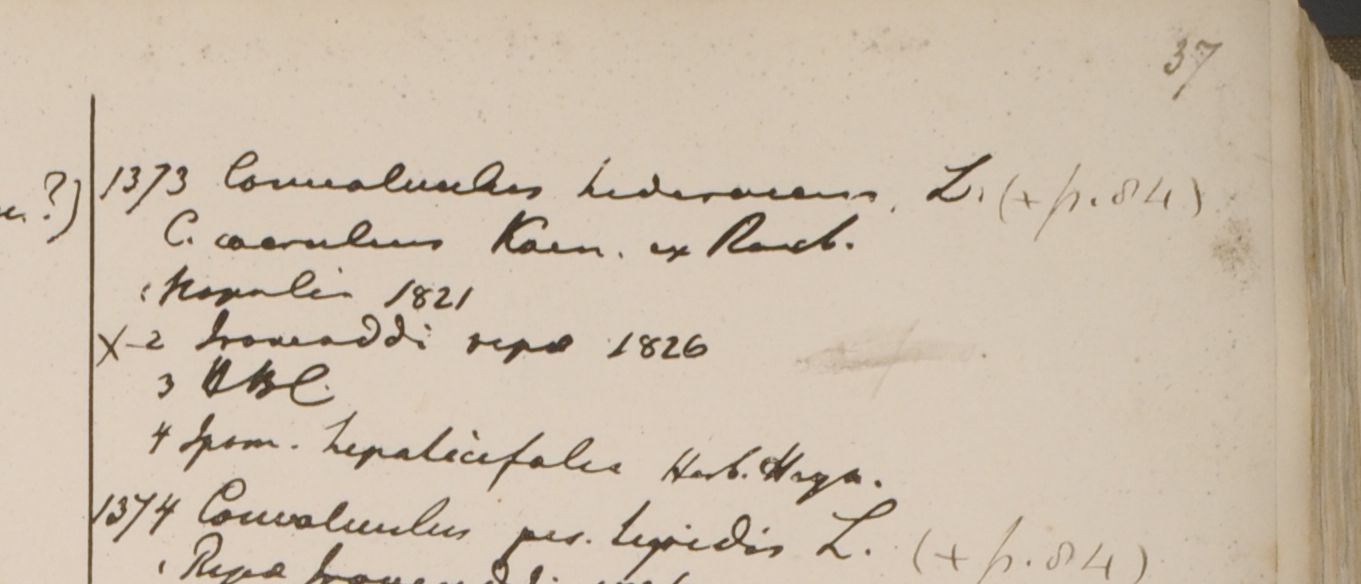 37
1373 Convolvulus hederaceus. L. (+ p. 84)
?)
C. coeruleus Koen. ex Roxb.
1 Napalia 1821
X-2 Irawaddi ripa 1826
3 HBC.
4 Ipom. hepaticifolia Herb. Heyn.
1374 Convolvulus pes. tigridis L. (+ p. 84)
1 Ripa Irawaddi